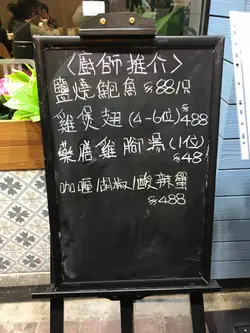 〈廚師推介〉
鹽燒鮑魚 $88/只
雞煲翅(4-6位)$488
藥膳雞腳湯(1位)
$48
咖喱/胡椒/酸辣蟹
$488